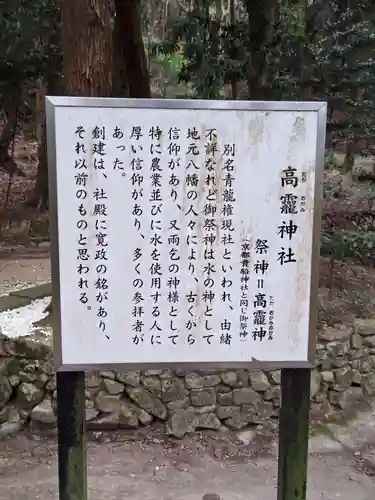 高龗神社
たか おがみ
祭神＝高龗神
たか おかみのかみ
（京都貴船神社と同じ御祭神）
別名青龍権現社といわれ、由緒
不詳なれど御祭神は水の神として
地元八幡の人々により、古くから
信仰があり、又雨乞の神様として
特に農業並びに水を使用する人に
厚い信仰があり、多くの参拝者が
あった。
創建は、社殿に寛政の銘があり、
それ以前のものと思われる。